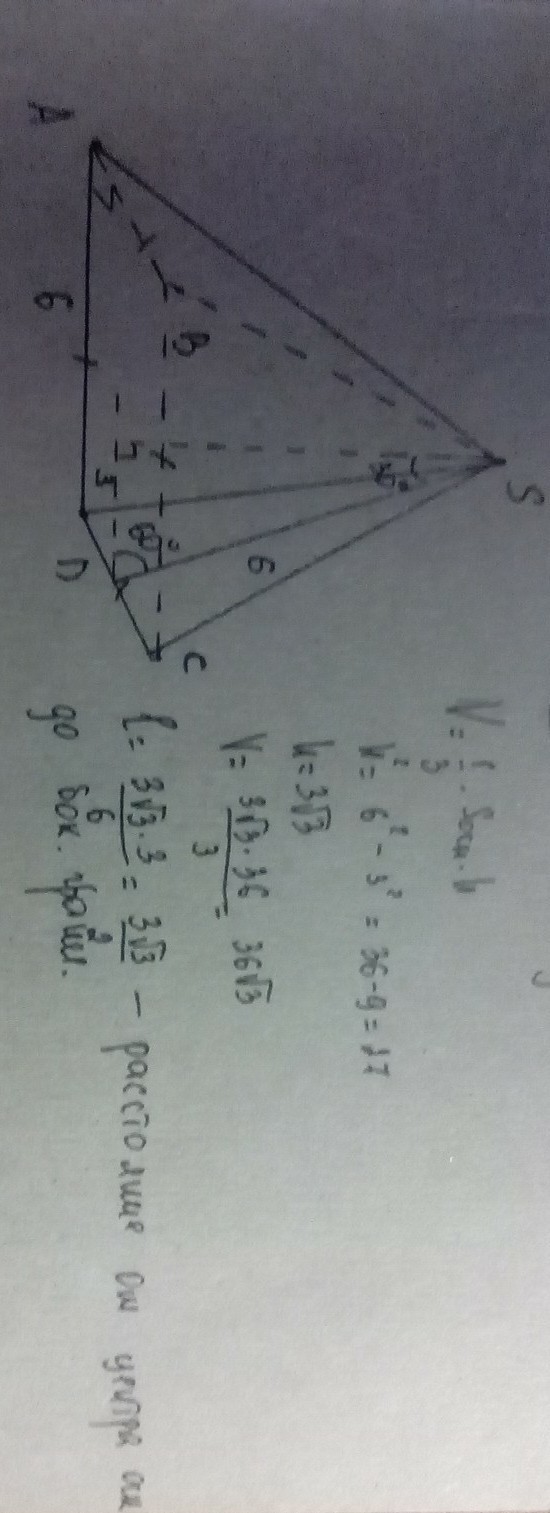 S
30°
A
B
C
D
6
3
60°
6
V = 1/3 · Sосн · h
h² = 6² - 3² = 36 - 9 = 27
h = 3√3
V = 3√3 · 36 / 3 = 36√3
l = 3√3 · 3 / 6 = 3√3 / 2 — расстояние от центра
до бок. грани.